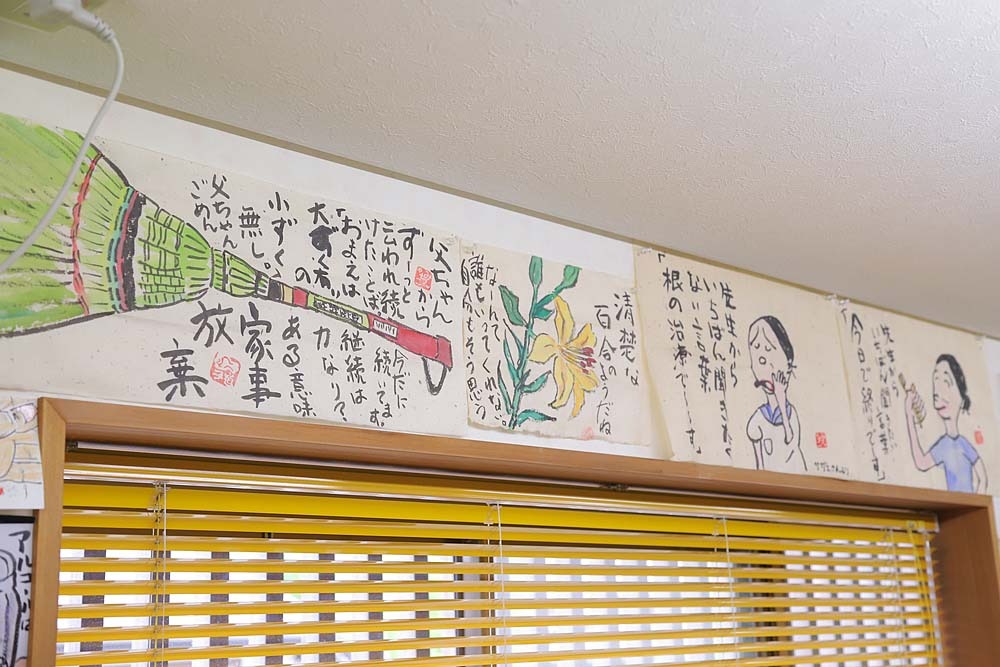 父ちゃん
から
ずーっと
云われ続
けたことば
「おまえは
大ずく有
の
小ずく
無し。
父ちゃん
ごめん
今だに
続いてます。
継続は
力なり?
ある意味
家事
放棄
清楚な
百合のようだね
なんて
誰もいってくれない。
自分もそう思う
先生から
いちばん聞きたく
ない言葉
「根の治療で〜す
先生から
いちばん聞きたい言葉
「今日で終りです」
アルコールは